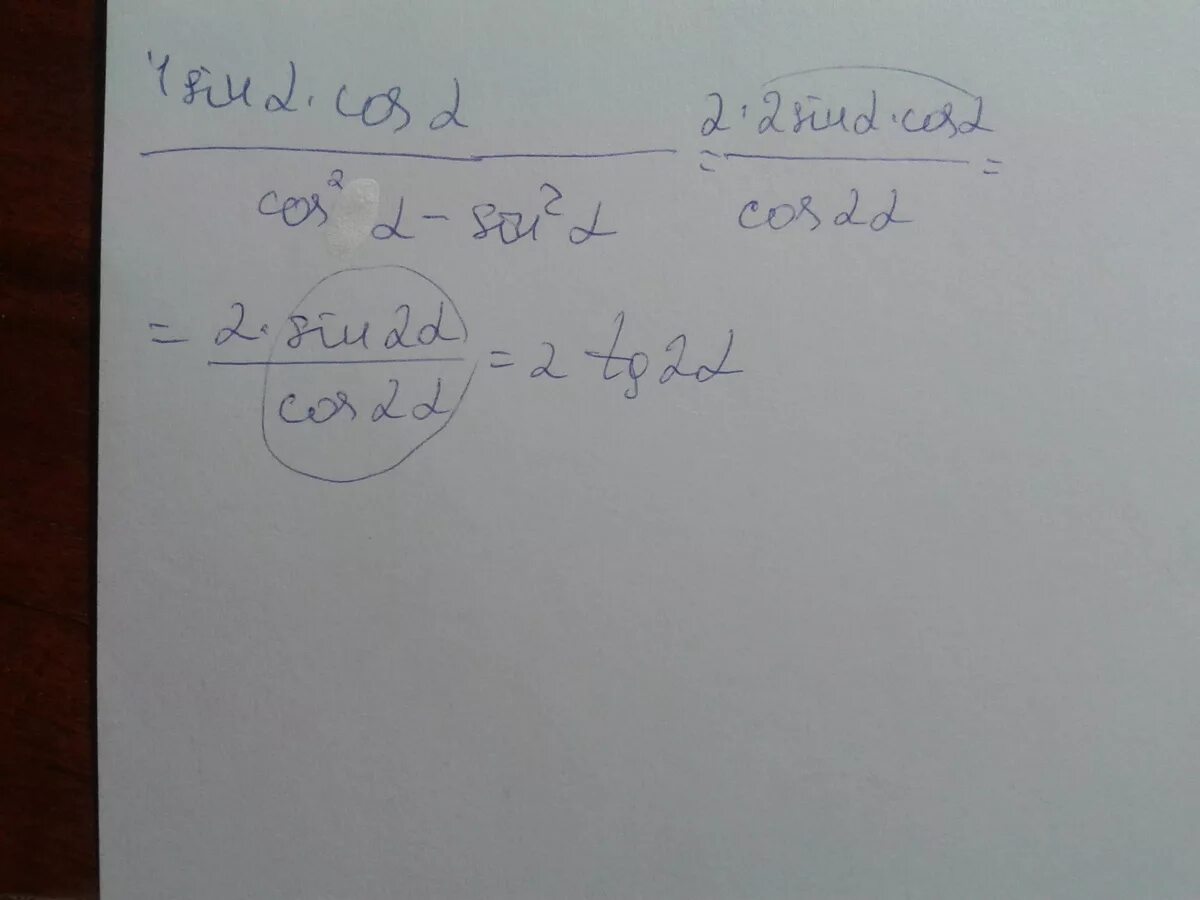 4 sin α · cos α / cos² α − sin² α = 2 · 2 sin α · cos α / cos 2α =
= 2 · sin 2α / cos 2α = 2 tg 2α